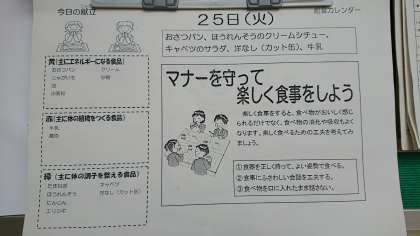 今日の献立
給食カレンダー
25日(火)
おさつパン、ほうれんそうのクリームシチュー、
キャベツのサラダ、洋なし(カット缶)、牛乳
黄(主にエネルギーになる食品)
おさつパン クリーム
じゃがいも 砂糖
油
小麦粉
赤(主に体の組織をつくる食品)
牛乳
緑(主に体の調子を整える食品)
たまねぎ キャベツ
ほうれんそう 洋なし(カット缶)
にんじん
エリンギ
マナーを守って
楽しく食事をしよう
楽しく食事をすると、食べ物がおいしく感じ
られるだけでなく、食べ物の消化や吸収もよく
なります。楽しく食べるための工夫を考えてみ
ましょう。
①食器を正しく持って、よい姿勢で食べる。
②食事にふさわしい会話をする。
③食べ物を口に入れたまま話さない。